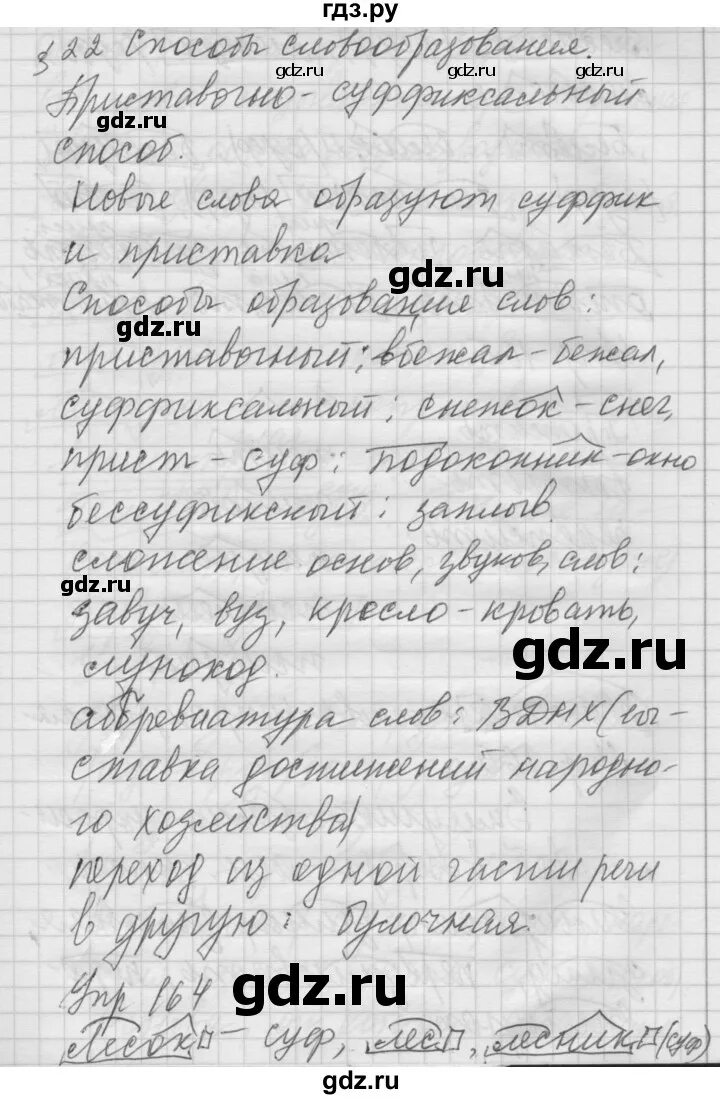 гдз.ру
§ 22 Способы словообразования.
gdz.ru gdz.ru
Приставочно-суффиксальный
gdz.ru
способ.
Новые слова образуют суффикс
и приставка
gdz.ru
Способы образование слов:
gdz.ru
приставочный: вбежал-бежал,
суффиксальный: снежок-снег,
прист-суф: подоконник-окно
бессуфиксный: заплыв.
сложение основ, звуков, слов:
gdz.ru
завуч, вуз, кресло-кровать,
gdz.ru
луноход.
аббревиатура слов: ВДНХ (вы-
ставка достижений народно-
го хозяйства)
переход из одной части речи
в другую: булочная.
Упр 164
gdz.ru
Лесок - суф, лес, лесник (суф)
gdz.ru gdz.ru
gdz.ru